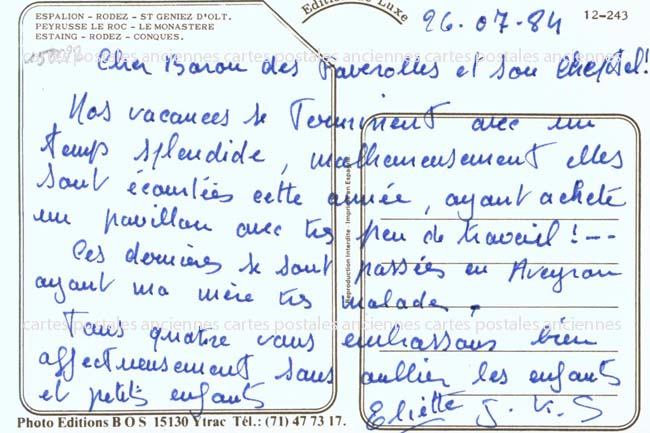 ESPALION - RODEZ - ST GENIEZ D'OLT.
PEYRUSSE LE ROC - LE MONASTERE
ESTAING - RODEZ - CONQUES.
Luxe
12-243
26.07.84
cartes postales anciennes cartes postales anciennes cartes postales anciennes
Cher Baron des Faverolles et son cheptel!
Nos vacances se Terminent avec un
temps splendide, malheureusement elles
sont écourtées cette année, ayant acheté
un pavillon avec très peu de travail! ---
Ces dernières se sont passées en Aveyron
ayant ma mère très malade.
Reproduction Interdite
cartes postales anciennes cartes postales anciennes cartes postales anciennes
Tous quatre vous embrassons bien
affectueusement sans oublier les enfants
et petits enfants
Eliette J. K. S
Photo Editions B O S 15130 Ytrac Tél.: (71) 47 73 17.